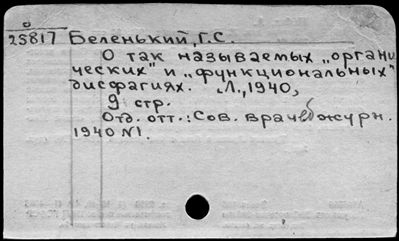 о
25817 Беленький, Г.С.
О так называемых „органи
ческих" и „функциональных"
дисфагиях. Л., 1940,
9 стр.
Отд. отт.: Сов. врачеб журн.
1940 №1.